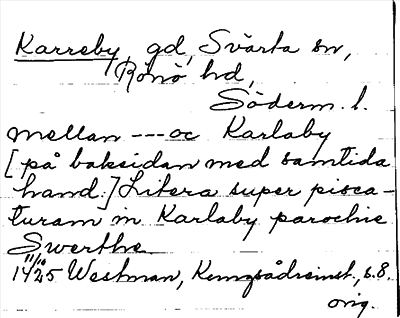 Karreby, gd, Svärta sn,
Rönö hd,
Söderm. l.
mellan --- oc Karlaby
[på baksidan med samtida
hand:] Litera super pisca-
turam in Karlaby parochie
Swerthe
11/10
1425 Westman, s. 8.
orig.